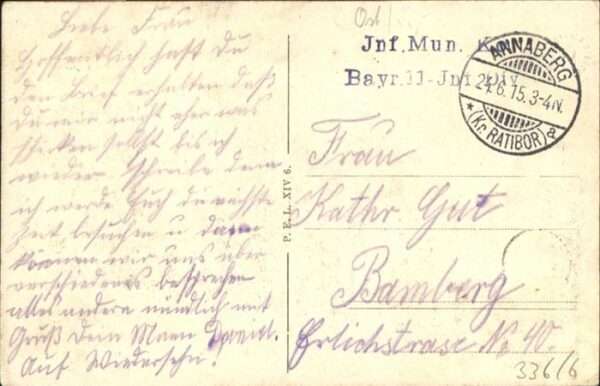 Liebe Frau
Hoffentlich hast Du
den Brief erhalten daß
Du mir nicht eher was
schicken sollst bis ich
wieder schreibe denn
ich werde Euch die nächste
Zeit besuchen u dann
können wir uns über
verschiedenes besprechen
alles andere mündlich mit
Gruß Dein Mann
Auf Wiedersehn!
P. F. L. XIV 6.
Ost
Inf. Mun. K
Bayr. 11-Inf Div
ANNABERG
24.6.15.3-4N.
* (Kr. RATIBOR) a
Frau
Kathr. Gut
Bamberg
Erlichstrase No 40.
336/6